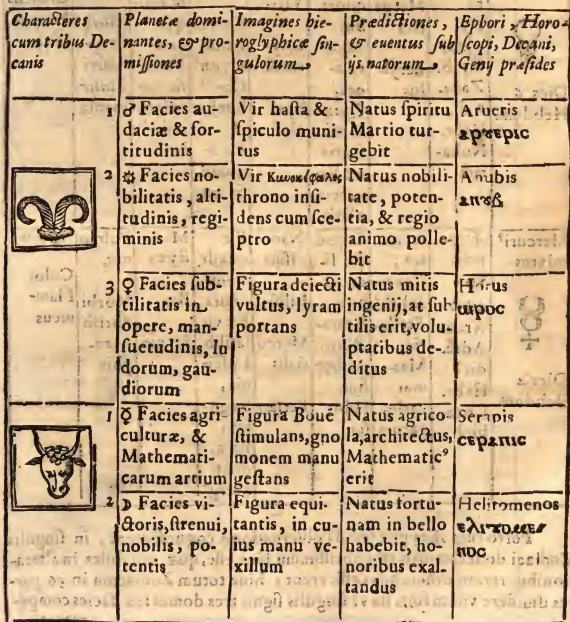 Characteres cum tribus Decanis
Planetæ dominantes, & promissiones
Imagines hieroglyphicæ singulorum
Prædictiones, & euentus sub ijs natorum
Ephori, Horoscopi, Decani, Genij præsides
1
♂ Facies audaciæ & fortitudinis
Vir hasta & spiculo munitus
Natus spiritu Martio turgebit
Arueris
ⲁⲣⲟⲩⲉⲣⲓⲥ
2
☼ Facies nobilitatis, altitudinis, regiminis
Vir Κυνοκέφαλος throno insidens cum sceptro
Natus nobilitate, potentia, & regio animo pollebit
Anubis
ⲁⲛⲟⲩⲃ
3
♀ Facies subtilitatis in opere, mansuetudinis, ludorum, gaudiorum
Figura deiecti vultus, lyram portans
Natus mitis ingenij, at subtilis erit, voluptatibus deditus
Horus
ⲱⲣⲟⲥ
1
☿ Facies agriculturæ, & Mathematicarum artium
Figura Bouē stimulans, gnomonem manu gestans
Natus agricola, architectus, Mathematic⁹ erit
Serapis
ⲥⲉⲣⲁⲡⲓⲥ
2
☽ Facies victoris, strenui, nobilis, potentis
Figura equitantis, in cuius manu vexillum
Natus fortunam in bello habebit, honoribus exaltandus
Helitomenos
ⲉⲗⲓⲧⲟⲙⲉⲛⲟⲥ